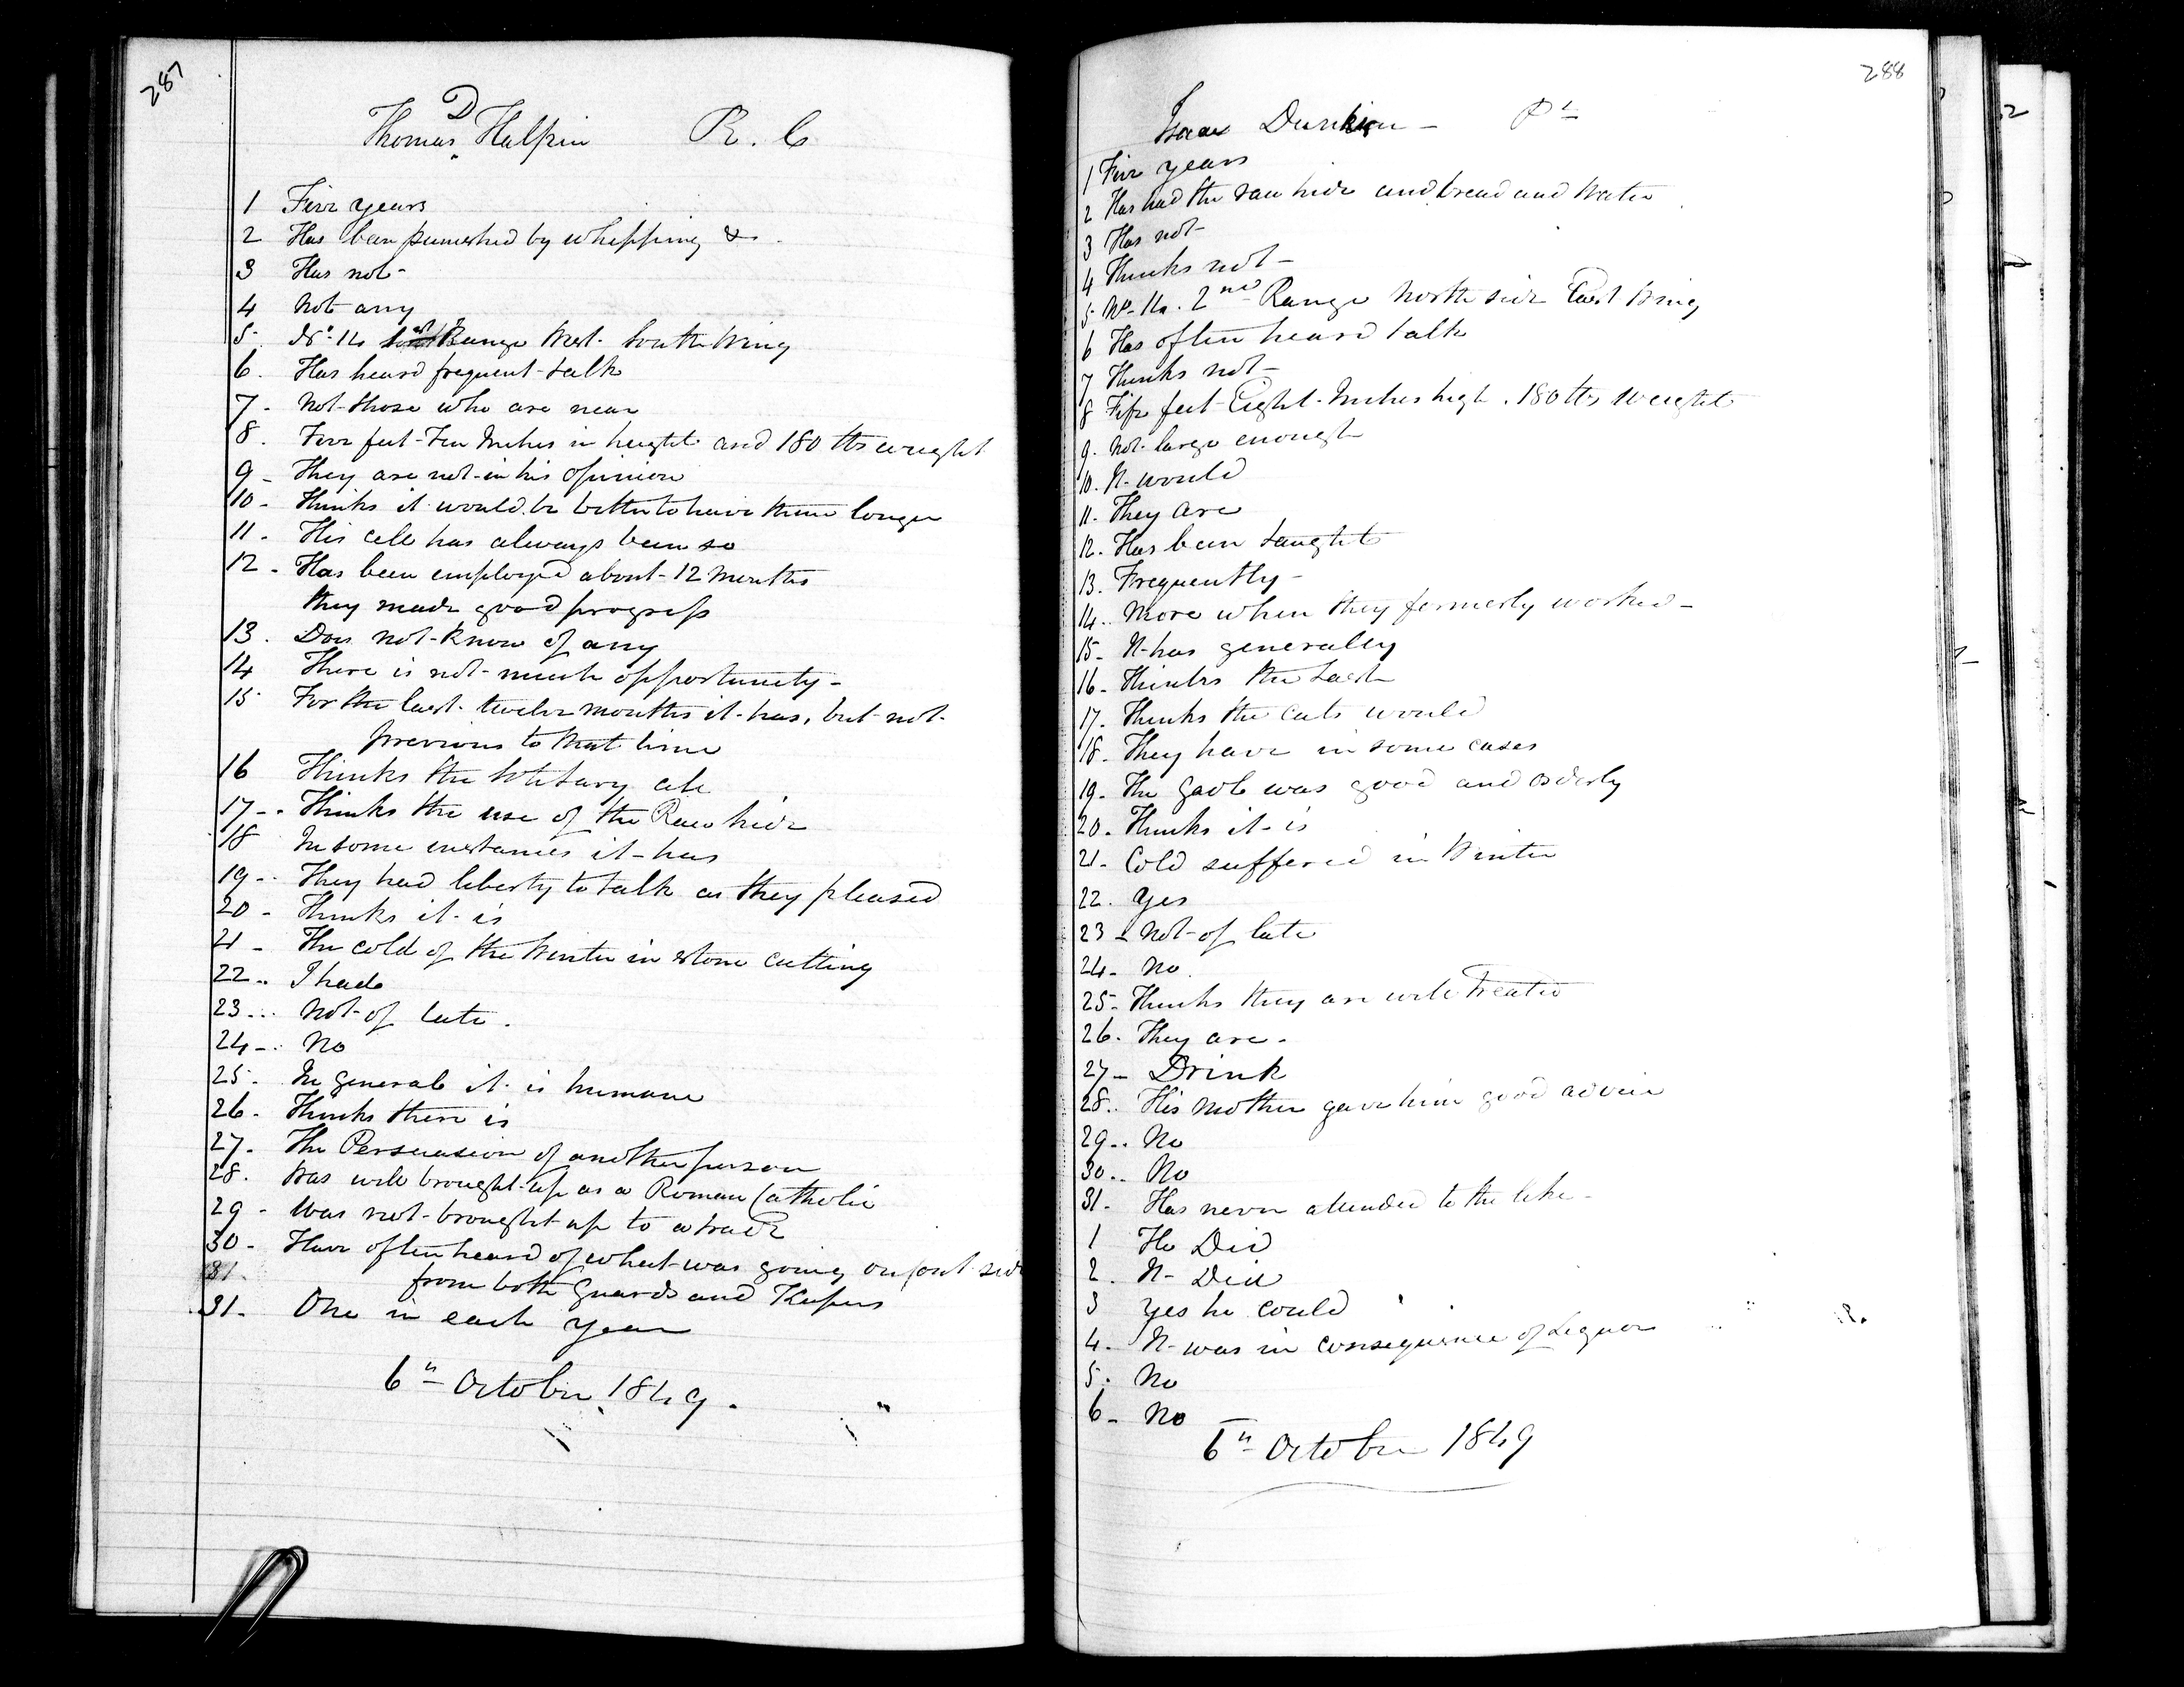 287
D
Thomas Halpin R. C
1 Five years
2 Has been punished by whipping &.
3 Has not-
4 Not any
5. No. 14 Range West. South Wing
6. Has heard frequent talk
7- Not those who are near
8. Five feet-Ten Inches in height and 180 lbs weight
9- They are not-in his Opinion
10- Thinks it would be better to have them longer
11- His cell has always been so
12- Has been employed about-12 Months
they made good progress
13. Does not-know of any
14 There is not-much opportunity-
15 For the last twelve months it-has, but-not-
previous to that time
16 Thinks the Solitary cell
17-. Thinks the use of the Raw hide
18 In some instances it-has
19-. They had liberty to talk as they pleased
20- Thinks it-is
21- The cold of the Winter in stone cutting
22.. I had
23... Not-of late.
24-. No
25. In general it-is humane
26. Thinks there is
27. The Persuasion of another person
28. Was well brought-up as a Roman Catholic
29- Was not-brought-up to a trade
30- Have often heard of what-was going on out side
31. from both Guards and Keepers
31- One in each year
6th October 1849.
288
Isaac Dunkin- Pt
1 Five years
2 Has had the raw hide and bread and Water
3 Has not-
4 Thinks not-
5. No. 14. 2nd Range North side East Wing
6 Has often heard talk
7 Thinks not-
8 Five feet-Eight-Inches high. 180 lbs weight
9. Not-large enough
10. It-would
11. They are
12. Has been taught
13. Frequently-
14.. More when they formerly worked-
15- It-has generally
16- Thinks the Lash
17. Thinks the Cats would
18- They have in some cases
19- The Gaol was good and orderly
20- Thinks it-is
21- Cold suffered in Winter
22. Yes
23- Not-of late
24- No.
25- Thinks they are well Treated
26. They are.
27- Drink
28.. His Mother gave him good advice
29.. No
30.. No
31. Has never attended to the like-
1 He Did
2. It- Did
3 Yes he could
4. It-was in consequence of Liquor
5. No
6- No
6th October 1849